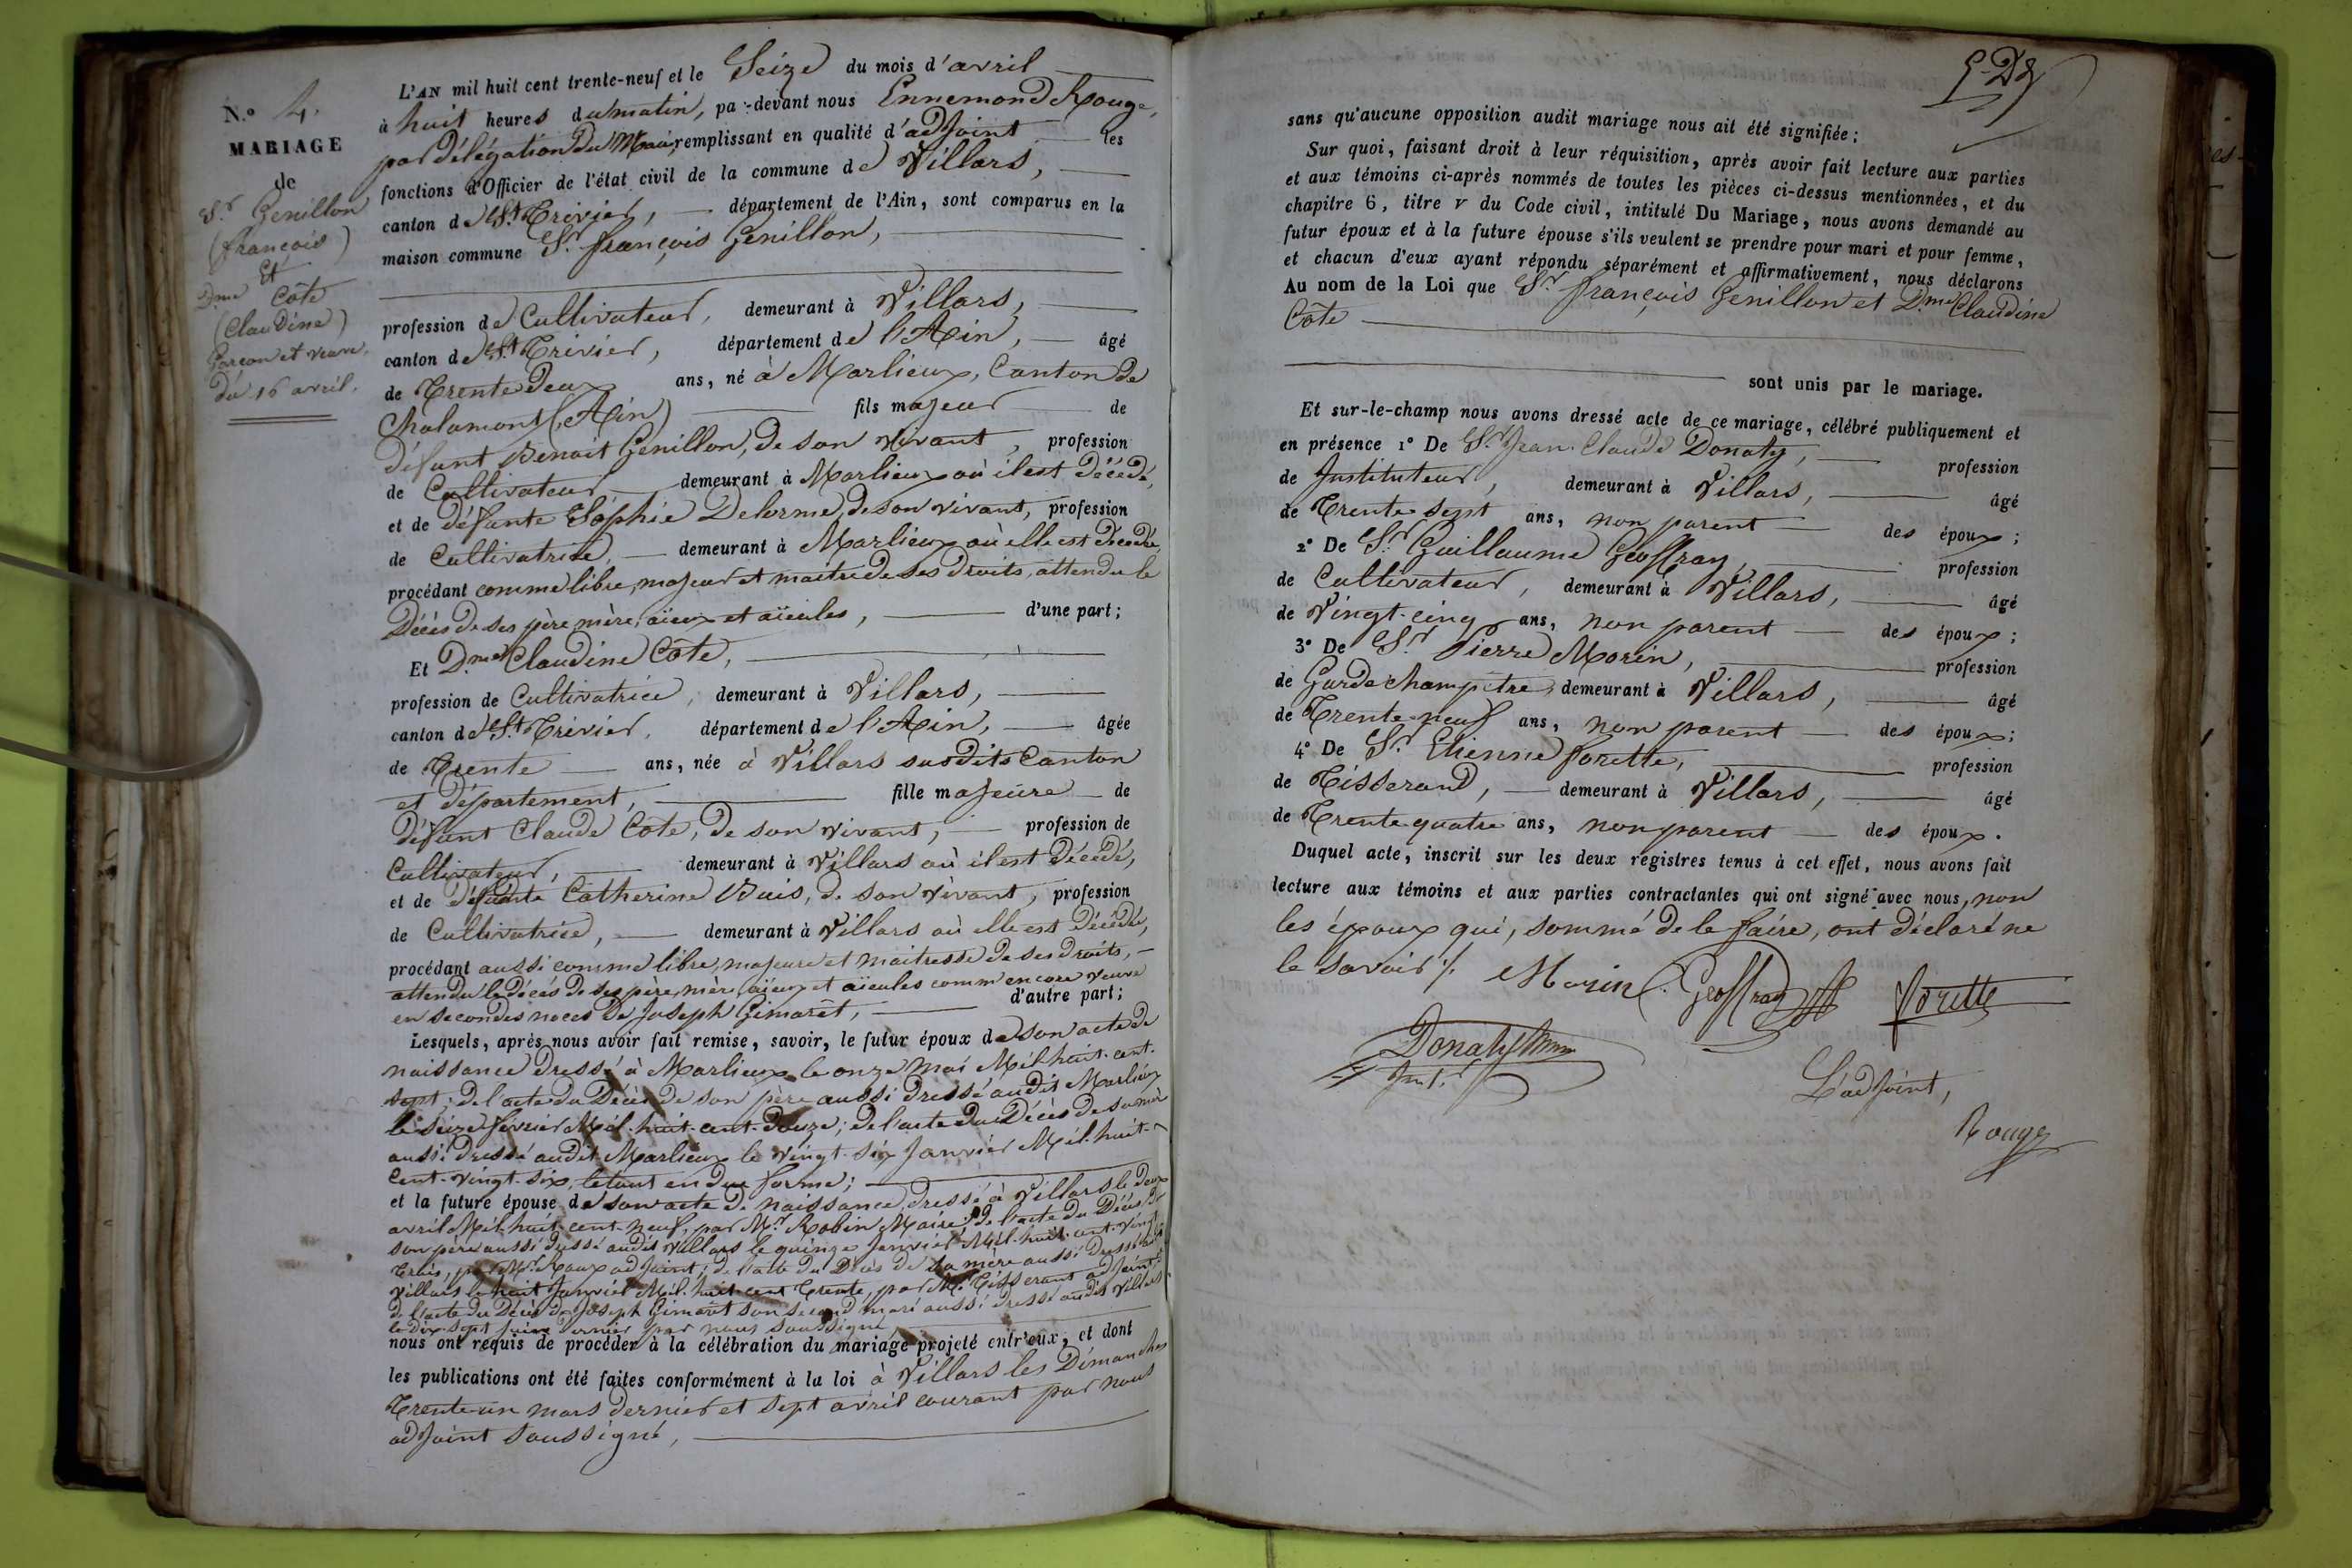 N.o 4.
MARIAGE
de
Sr. Genillon
(françois)
Et
Dme Côte
(Claudine)
Garçon et veuve.
du 16 avril.
L'AN mil huit cent trente-neuf et le Seize du mois d'avril
à huit heures du matin, pa-devant nous Ennemond Rouge,
par délégation du Maire, remplissant en qualité d'adjoint les
fonctions d'Officier de l'état civil de la commune de Villars,
canton de St. Trivier, département de l'Ain, sont comparus en la
maison commune Sr. françois Genillon,
profession de Cultivateur, demeurant à Villars,
canton de St. Trivier, département de l'Ain, âgé
de Trente deux ans, né à Marlieux, Canton de
Chalamont (Ain) fils majeur de
défunt Benoit Genillon, de son vivant, profession
de Cultivateur demeurant à Marlieux où il est décédé,
et de défunte Sophie Delorme, de son vivant, profession
de Cultivatrice, demeurant à Marlieux où elle est décédée,
procédant comme libre, majeur et maitre de ses droits, attendu le
Décès de ses père, mère, aïeux et aïeules, d'une part;
Et Dme Claudine Côte,
profession de Cultivatrice, demeurant à Villars,
canton de St. Trivier, département de l'Ain, âgée
de Trente ans, née à Villars susdits Canton
et département, fille majeure de
défunt Claude Côte, de son vivant, profession de
Cultivateur, demeurant à Villars où il est décédé,
et de défunte Catherine Buis, de son vivant, profession
de Cultivatrice, demeurant à Villars où elle est décédée,
procédant aussi comme libre, majeure et maitresse de ses droits,
attendu le décès de ses père, mère, aïeux et aïeules comm'encore veuve
en secondes noces de Joseph Gimarêt, d'autre part;
Lesquels, après nous avoir fait remise, savoir, le futur époux de son acte de
naissance dressé à Marlieux le onze mai Mil-huit-cent-
sept; de l'acte du Décès de son père aussi dressé audit Marlieux
le seize février Mil-huit-cent-douze; de l'acte du Décès de sa mère
aussi dressé audit Marlieux le vingt-six Janvier Mil-huit-
cent-vingt-six, le tout en due forme;
et la future épouse de son acte de naissance, dressé à Villars le deux
avril Mil-huit-cent-neuf, par Mr. Robin Maire; de l'acte du Décès de
son père aussi dressé audit Villars le quinze Janvier Mil-huit-cent-vingt
trois, par Mr. Roux adjoint; de l'acte du Décès de sa mère aussi dressé audit
Villars le huit Janvier Mil-huit-cent Trente, par Mr. Tisserant adjoint;
de l'acte du Décès de Joseph Gimarêt son second mari aussi dressé audit Villars
le dix-sept Juin dernier par nous soussigné,
nous ont requis de procéder à la célébration du mariage projeté entr'eux, et dont
les publications ont été faites conformément à la loi à Villars les Dimanches
Trente-un mars dernier et sept avril courant par nous
adjoint soussigné,
sans qu'aucune opposition audit mariage nous ait été signifiée;
Sur quoi, faisant droit à leur réquisition, après avoir fait lecture aux parties
et aux témoins ci-après nommés de toutes les pièces ci-dessus mentionnées, et du
chapitre 6, titre V du Code civil, intitulé Du Mariage, nous avons demandé au
futur époux et à la future épouse s'ils veulent se prendre pour mari et pour femme,
et chacun d'eux ayant répondu séparément et affirmativement, nous déclarons
Au nom de la Loi que Sr. françois Genillon et Dme Claudine
Côte
sont unis par le mariage.
Et sur-le-champ nous avons dressé acte de ce mariage, célébré publiquement et
en présence 1° De Sr. Jean-Claude Donaty, profession
de Instituteur, demeurant à Villars, âgé
de Trente-sept ans, non parent des époux;
2° De Sr. Guillaume Geoffray, profession
de Cultivateur, demeurant à Villars, âgé
de Vingt-cinq ans, non parent des époux;
3° De Sr. Pierre Morin, profession
de Garde champêtre, demeurant à Villars, âgé
de Trente-neuf ans, non parent des époux;
4° De Sr. Etienne forette, profession
de Tisserand, demeurant à Villars, âgé
de Trente-quatre ans, non parent des époux.
Duquel acte, inscrit sur les deux registres tenus à cet effet, nous avons fait
lecture aux témoins et aux parties contractantes qui ont signé avec nous, non
les époux qui, sommé de le faire, ont déclaré ne
le savoir ./. Morin Geoffray forette
Donaty
Inst.r
L'adjoint,
Rouge